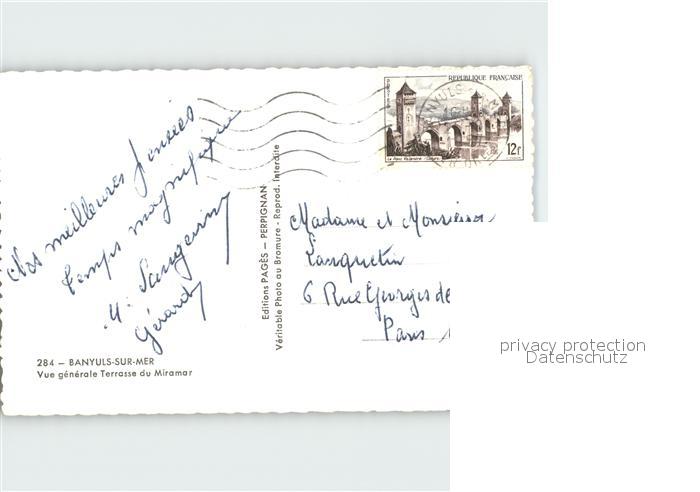 Nos meilleures pensées
temps magnifique
Gérard
284 — BANYULS-SUR-MER
Vue générale Terrasse du Miramar
Editions PAGÈS — PERPIGNAN
Véritable Photo au Bromure - Reprod. Interdite
REPUBLIQUE FRANÇAISE
POSTES
12F
Le Pont Valentré - Cahors
Madame et Monsieur
Lanquetin
6 Rue Georges de
Paris
privacy protection
Datenschutz